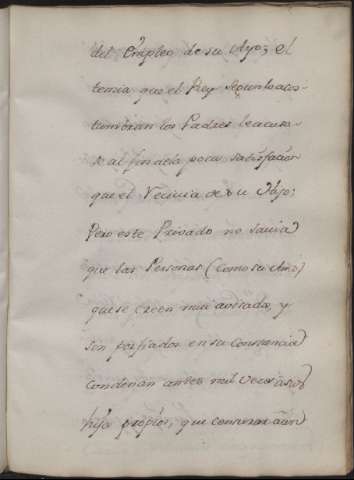 del Empleo de su Ayo; el
temia que el Rey segun lo acos-
tumbran los Padres le acusa-
se al fin de la poca satisfacion
que el Tenia de su Hijo;
Pero este Privado no savia
que las Personas (como su Amo)
que se creen mui avisadas, y
son porfiados en su Constancia
Condenan antes mil veces a sus
hijos propios, que convenir aun